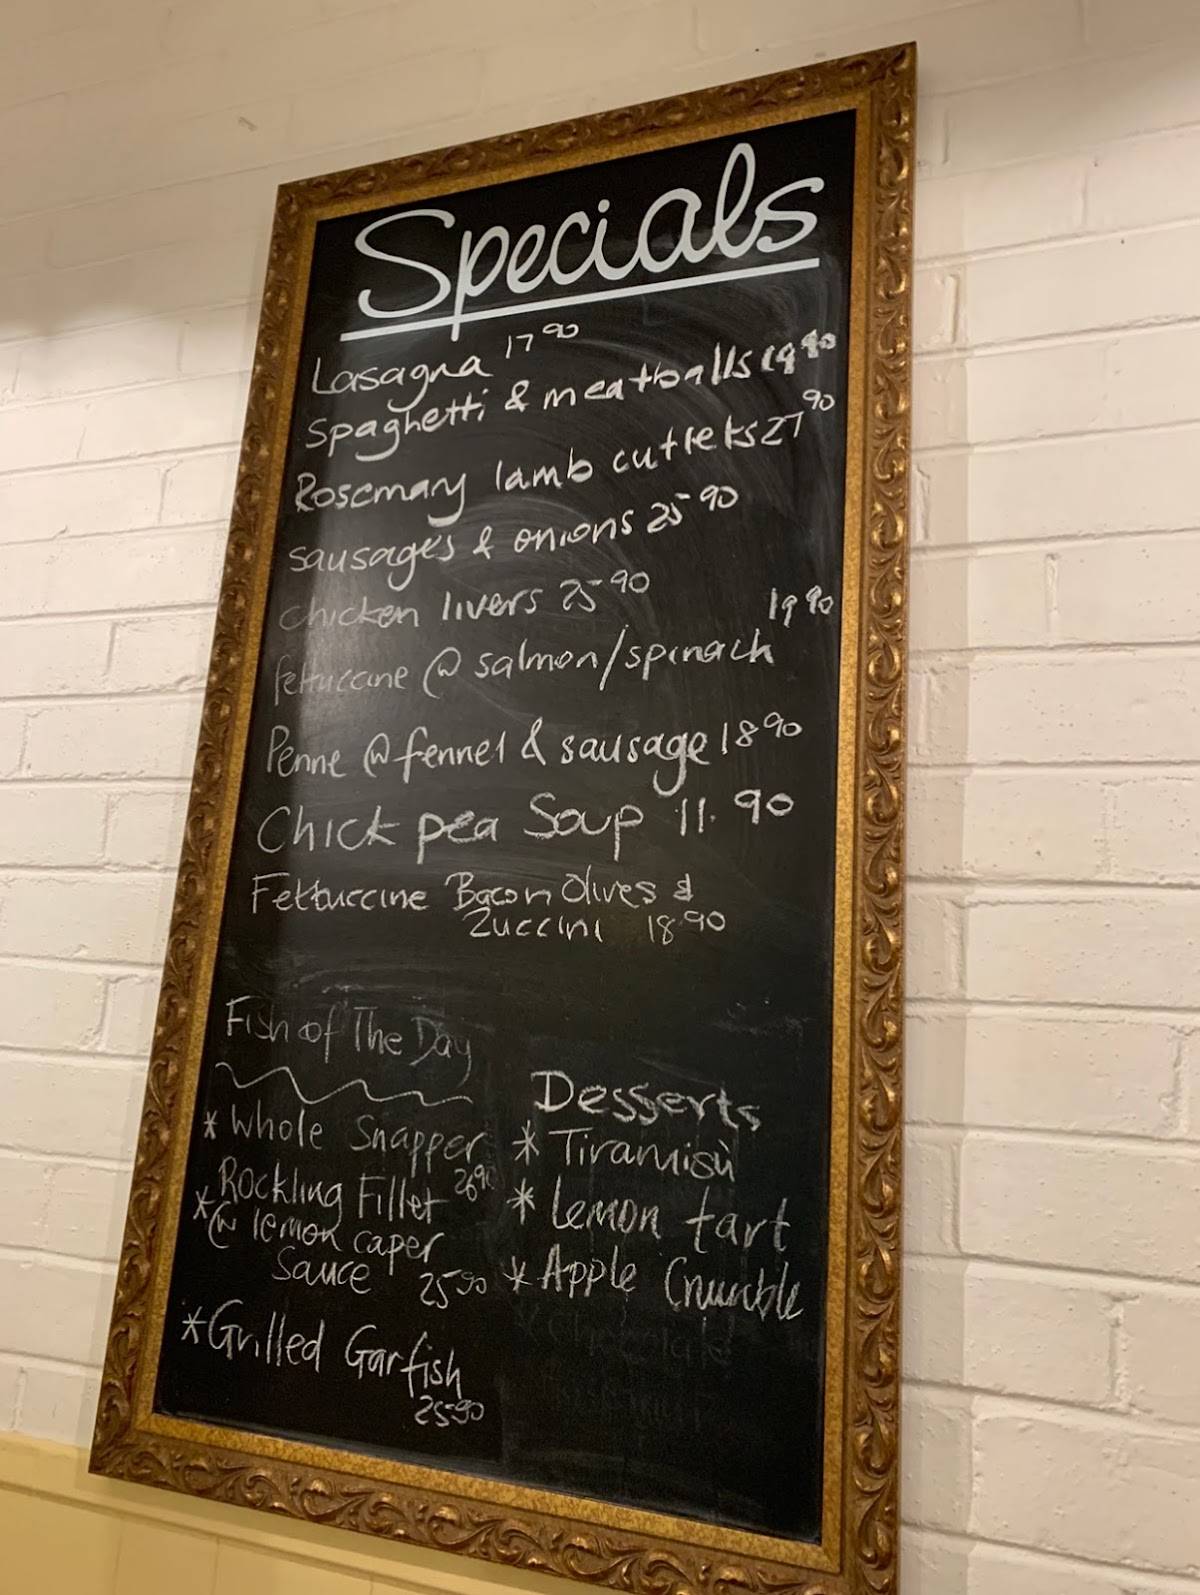 Specials
Lasagna 17 90
Spaghetti & meatballs 19 90
Rosemary lamb cutlets 27 90
sausages & onions 25 90
chicken livers 25 90
19 90
fettuccine @ salmon/spinach
Penne @ fennel & sausage 18 90
Chick pea Soup 11. 90
Fettuccine Bacon Olives &
Zuccini 18 90
Fish of The Day
* Whole Snapper
26 90
* Rockling Fillet
@ lemon caper
Sauce 25 90
* Grilled Garfish
25 90
Desserts
* Tiramisù
* Lemon tart
* Apple Crumble
Chocolate